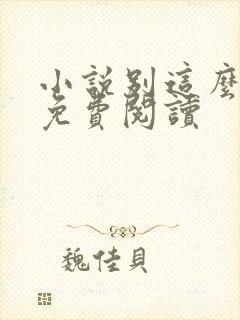 小説別這麽
免費閱讀
魏佳貝